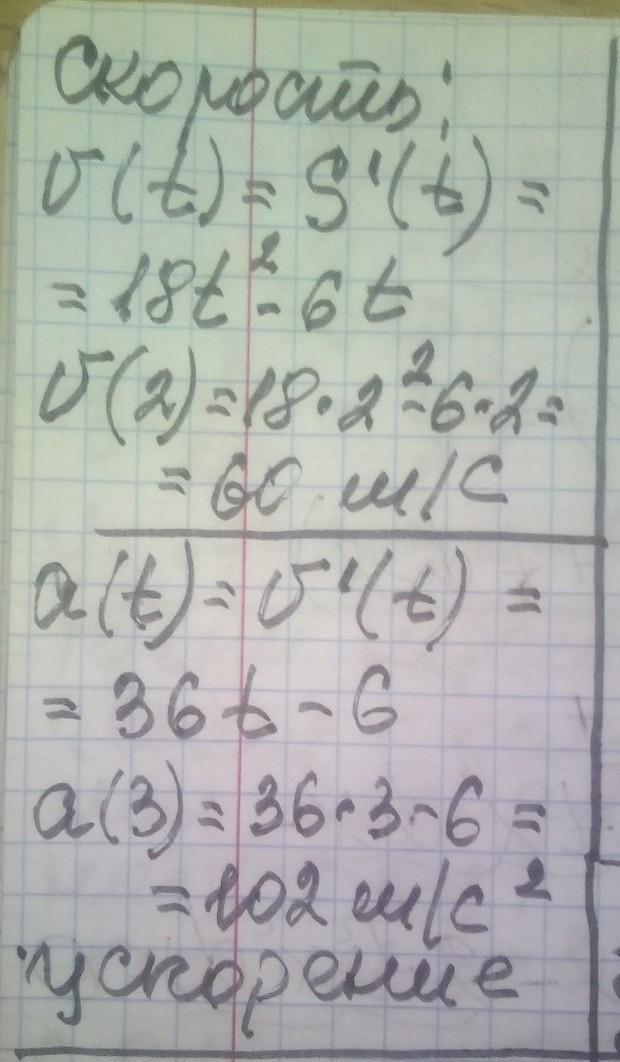 Скорость:
v(t) = S'(t) =
= 18t² - 6t
v(2) = 18·2² - 6·2 =
= 60 м/с
a(t) = v'(t) =
= 36t - 6
a(3) = 36·3 - 6 =
= 102 м/с²
ускорение